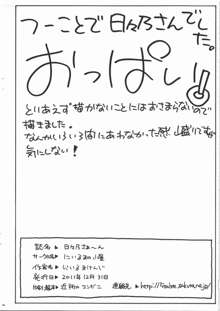 つーことで日々乃さんでした。
おっぱい!
とりあえず描かないことにはおさまらないので
描きました。
なんかいろいろ間にあわなかった感 山盛りですが
気にしない!
誌名 ▶ 日々乃さぁ〜ん
サークル名 ▶ にいるまの小屋
作者名 ▶ にいるまけんじ
発行日 ▶ 2011年12月31日
印刷製本 ▶ 近所のコンビニ 連絡先 ▶